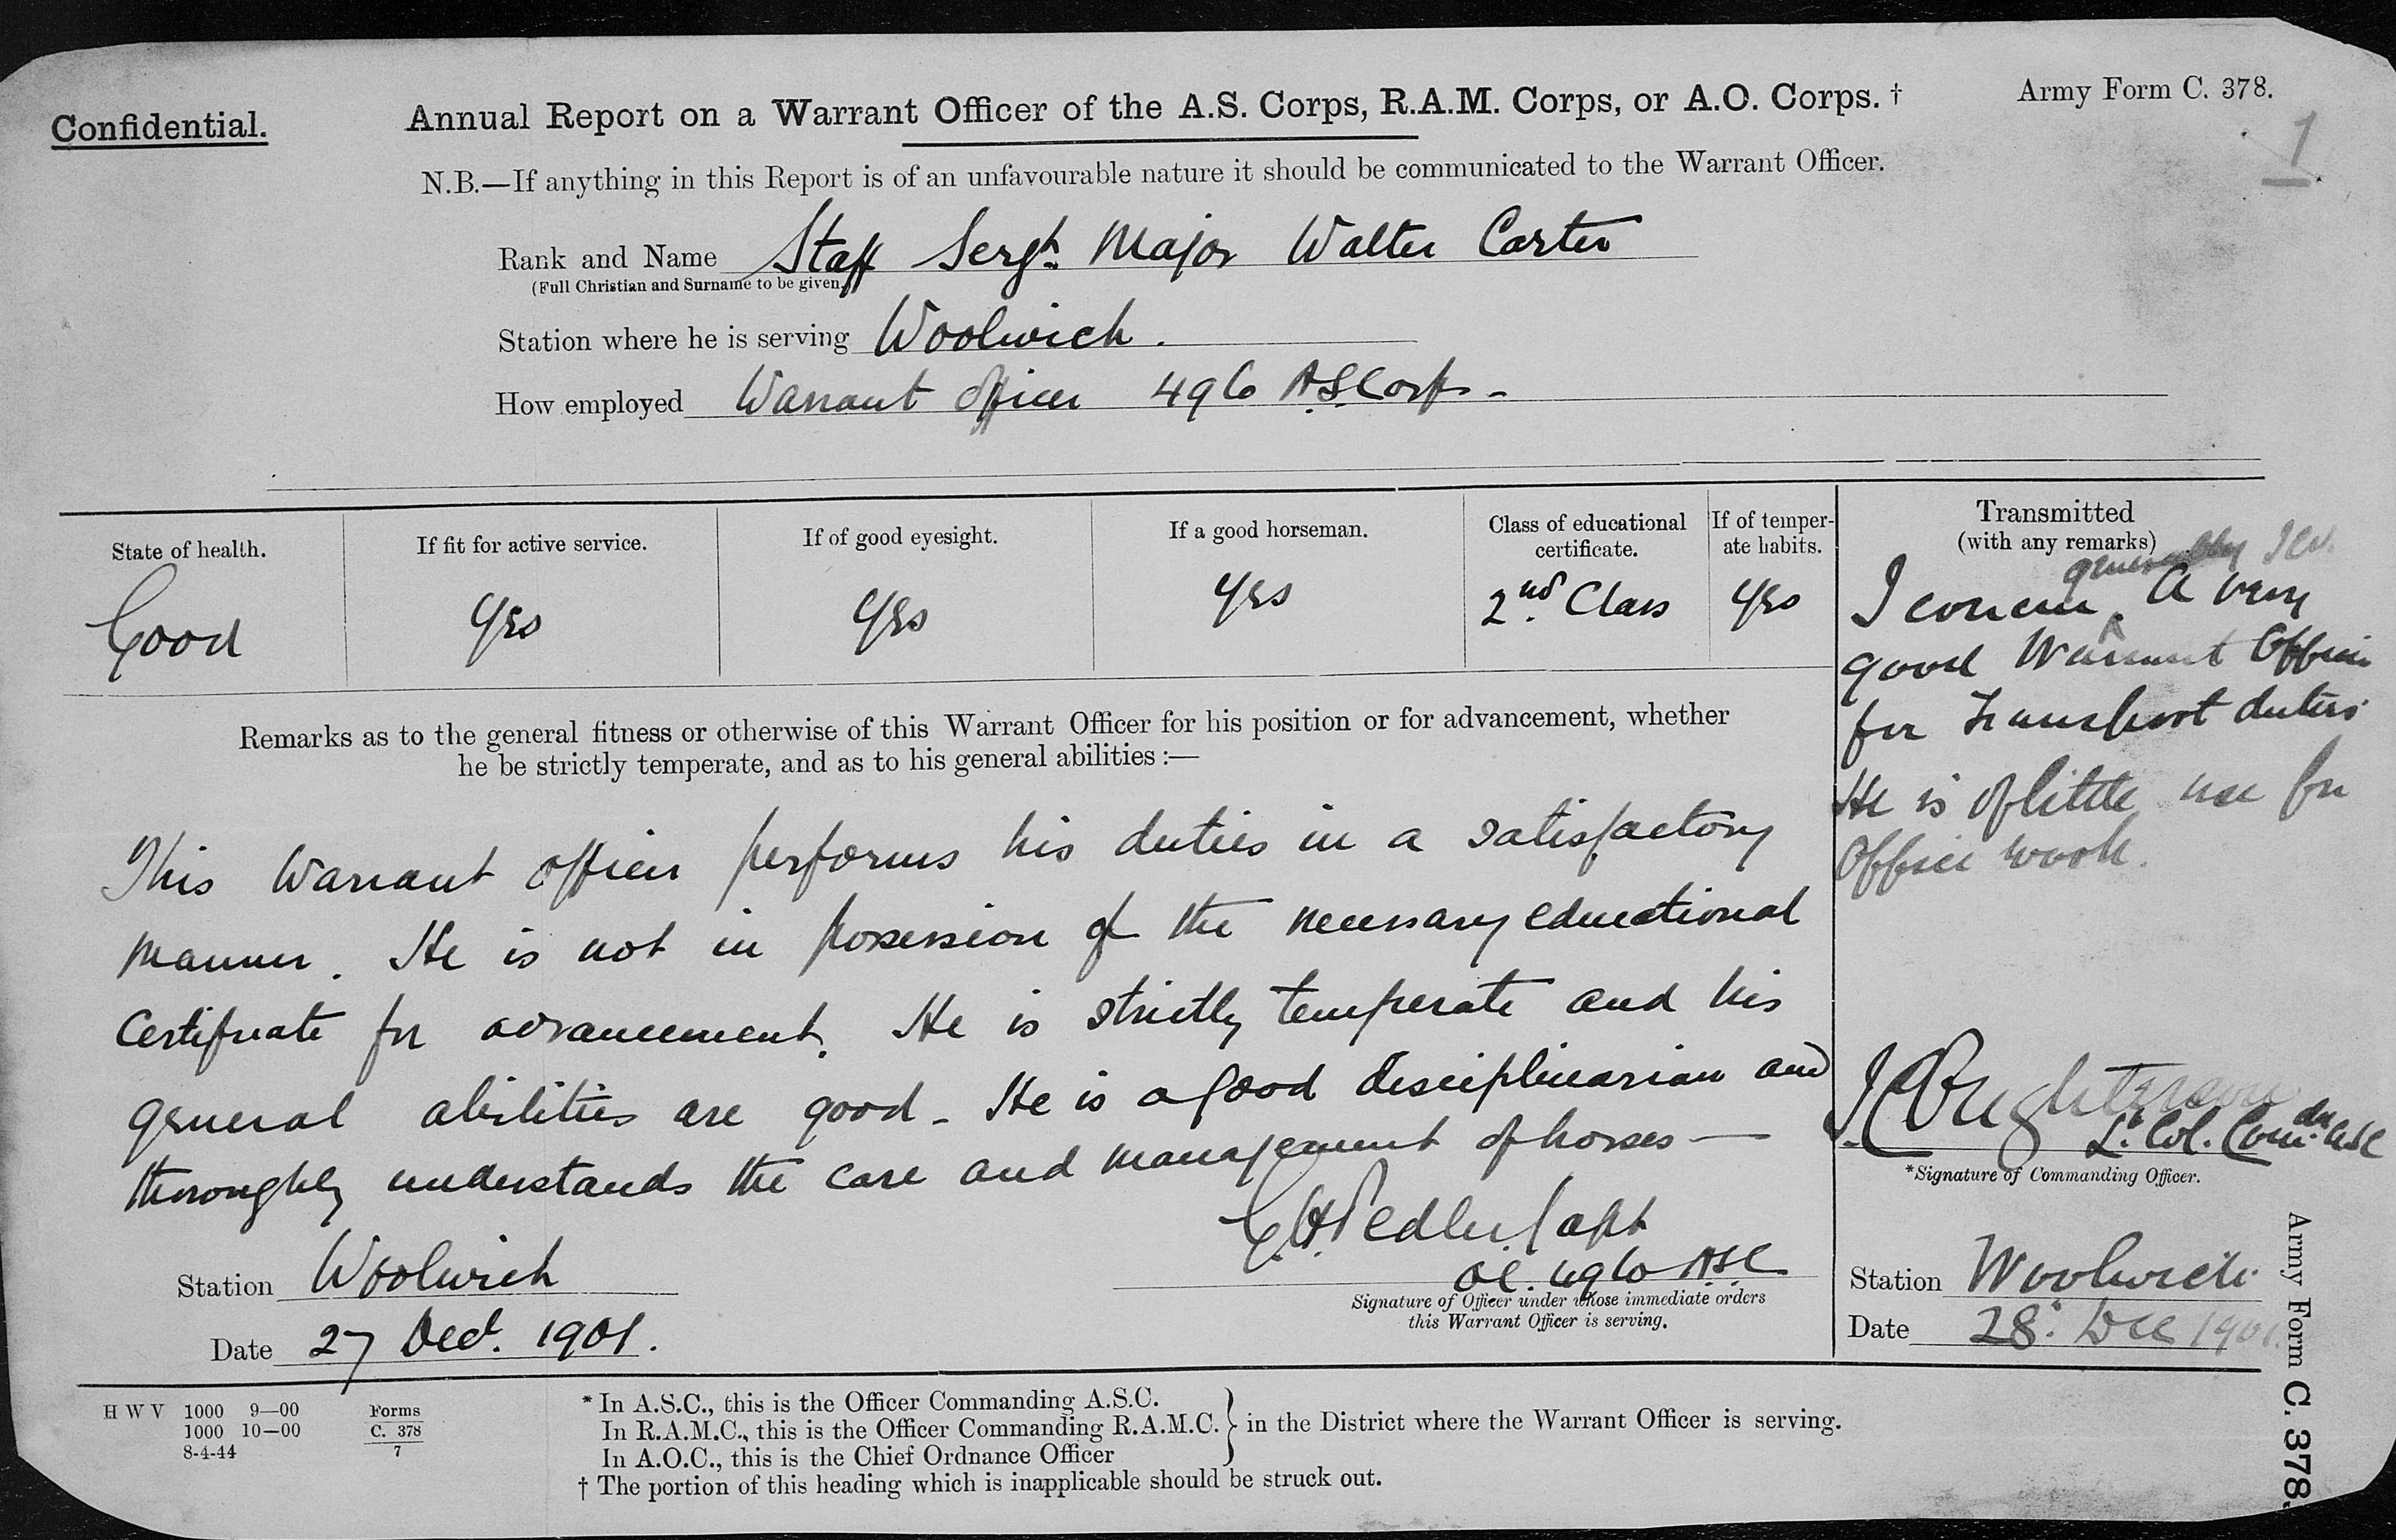 Army Form C. 378.
1
Confidential.
Annual Report on a Warrant Officer of the A.S. Corps, R.A.M. Corps, or A.O. Corps. †
N.B.—If anything in this Report is of an unfavourable nature it should be communicated to the Warrant Officer.
Rank and Name Staff Sergt. Major Walter Carter
(Full Christian and Surname to be given.)
Station where he is serving Woolwich.
How employed Warrant Officer 49 Co A.S. Corps -
State of health.
Good
If fit for active service.
Yes
If of good eyesight.
Yes
If a good horseman.
Yes
Class of educational
certificate.
2nd Class
If of temper-
ate habits.
Yes
Remarks as to the general fitness or otherwise of this Warrant Officer for his position or for advancement, whether
he be strictly temperate, and as to his general abilities :—
This Warrant officer performs his duties in a satisfactory
manner. He is not in possession of the necessary educational
Certificate for advancement. He is strictly temperate and his
general abilities are good - He is a good disciplinarian and
thoroughly understands the care and management of horses —
Capt
O.C. 49 Co A.S.C
Signature of Officer under whose immediate orders
this Warrant Officer is serving.
Station Woolwich
Date 27 Decr. 1901.
Transmitted
(with any remarks)
generally
I concur ^ A very
good Warrant Officer
for Transport duties
He is of little use for
Office work.
Lt. Col. Comdg ASC
*Signature of Commanding Officer.
Station Woolwich
Date 28. Dec 1901
H W V 1000 9—00
1000 10—00
8-4-44
Forms
C. 378
7
* In A.S.C., this is the Officer Commanding A.S.C.
In R.A.M.C., this is the Officer Commanding R.A.M.C. } in the District where the Warrant Officer is serving.
In A.O.C., this is the Chief Ordnance Officer
† The portion of this heading which is inapplicable should be struck out.
Army Form C. 378.